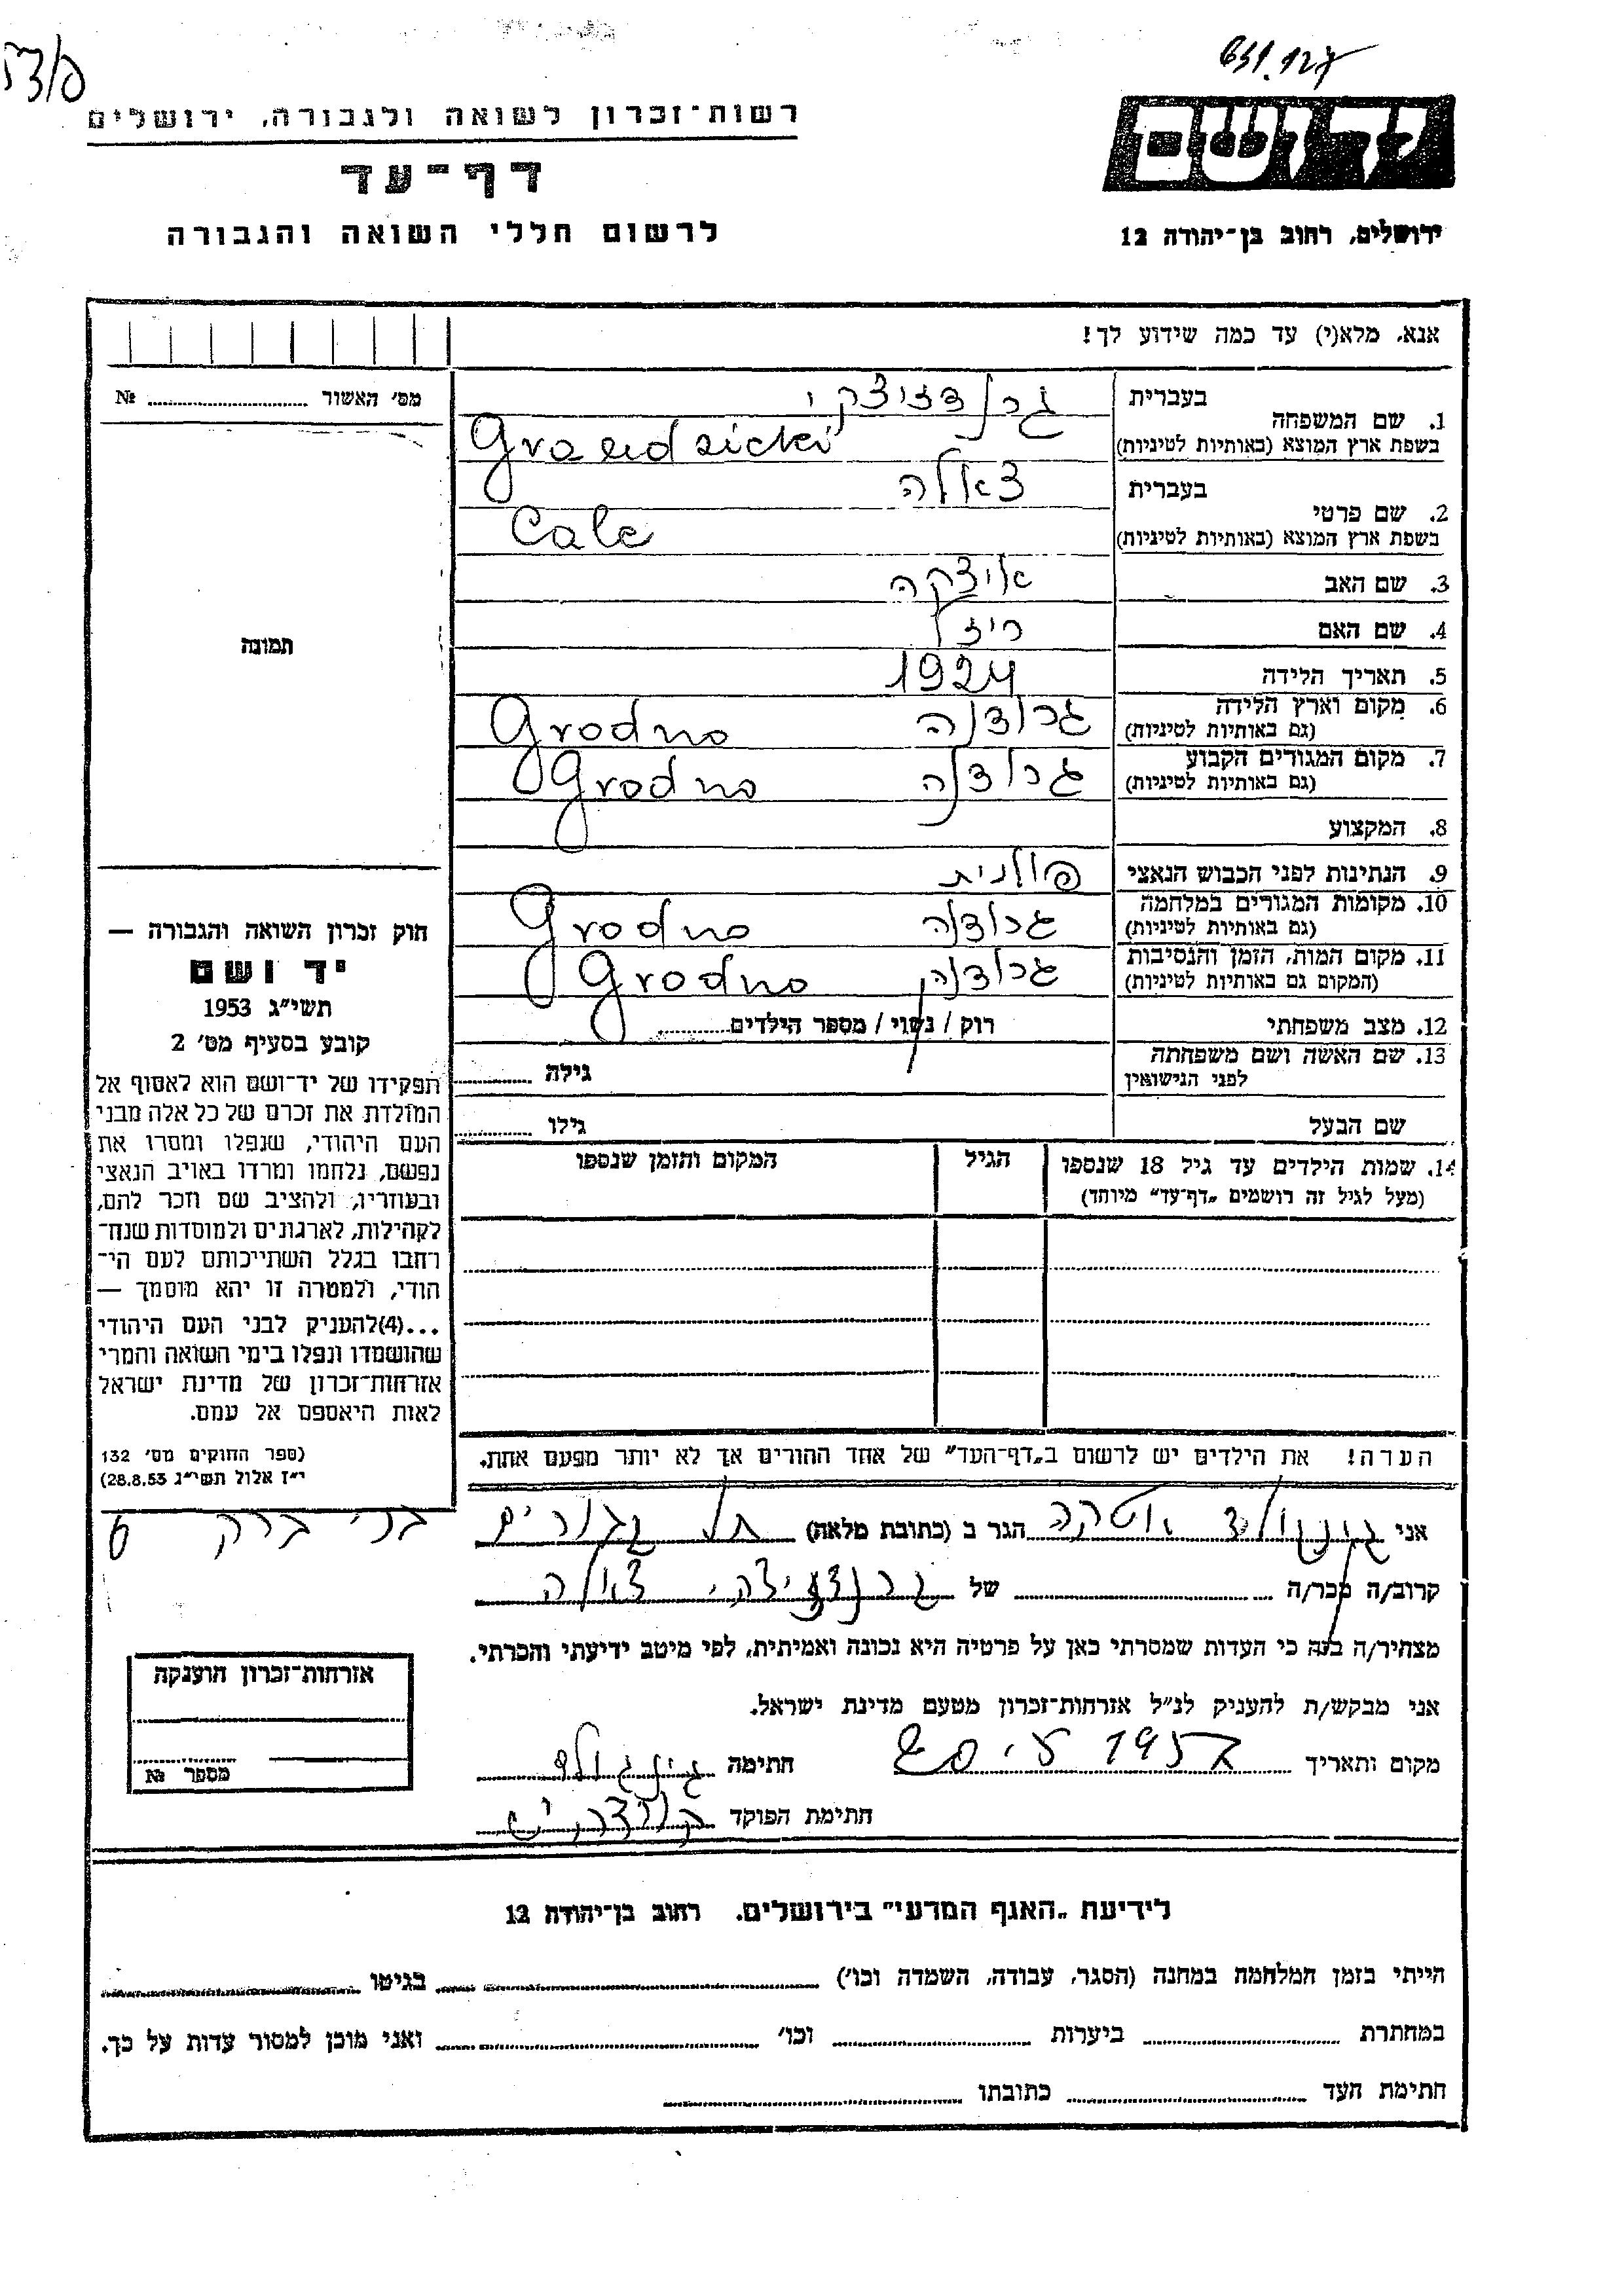 רשות־זכרון לשואה ולגבורה, ירושלים
דף־עד
לרשום חללי השואה והגבורה
ירושלים, רחוב בן־יהודה 12
אנא, מלא(י) עד כמה שידוע לך!
מס׳ האשור №
תמונה
חוק זכרון השואה והגבורה —
יד ושם
תשי״ג 1953
קובע בסעיף מס׳ 2
תפקידו של יד־ושם הוא לאסוף אל
המולדת את זכרם של כל אלה מבני
העם היהודי, שנפלו ומסרו את
נפשם, נלחמו ומרדו באויב הנאצי
ובעוזריו, ולהציב שם וזכר להם,
לקהילות, לארגונים ולמוסדות שנח־
רחבו בגלל השתייכותם לעם הי־
הודי, ולמטרה זו יהא מוסמך —
...(4)להעניק לבני העם היהודי
שהושמדו ונפלו בימי השואה והמרי
אזרחות־זכרון של מדינת ישראל
לאות היאספם אל עמם.
(ספר החוקים מס׳ 132
י״ז אלול תשי״ג 28.8.53)
1. שם המשפחה בעברית גרנדזיצקי
בשפת ארץ המוצא (באותיות לטיניות) Grandzicki
2. שם פרטי בעברית צאלה
בשפת ארץ המוצא (באותיות לטיניות) Cale
3. שם האב איצקה
4. שם האם ריזל
5. תאריך הלידה 1924
6. מקום וארץ הלידה (גם באותיות לטיניות) גרודנה Grodno
7. מקום המגורים הקבוע (גם באותיות לטיניות) גרודנה Grodno
8. המקצוע
9. הנתינות לפני הכבוש הנאצי פולנית
10. מקומות המגורים במלחמה (גם באותיות לטיניות) גרודנה Grodno
11. מקום המות, הזמן והנסיבות (המקום גם באותיות לטיניות) גרודנה Grodno
12. מצב משפחתי רוק / נשוי / מספר הילדים
13. שם האשה ושם משפחתה לפני הנישואין גילה
שם הבעל גילו
14. שמות הילדים עד גיל 18 שנספו (מעל לגיל זה רושמים „דף־עד״ מיוחד) הגיל המקום והזמן שנספו
הערה! את הילדים יש לרשום ב„דף־העד״ של אחד ההורים אך לא יותר מפעם אחת.
אני הגר ב (כתובת מלאה) תל גבורים בני ברק 6
קרוב/ה מכר/ה של גרנדזיצקי צאלה
מצהיר/ה בזה כי העדות שמסרתי כאן על פרטיה היא נכונה ואמיתית, לפי מיטב ידיעתי והכרתי.
אני מבקש/ת להעניק לנ״ל אזרחות־זכרון מטעם מדינת ישראל.
מקום ותאריך חתימה
חתימת הפוקד
אזרחות־זכרון הוענקה
מספר №
לידיעת „האגף המדעי״ בירושלים, רחוב בן־יהודה 12
הייתי בזמן המלחמה במחנה (הסגר, עבודה, השמדה וכו׳) בגיטו
במחתרת ביערות וכו׳ ואני מוכן למסור עדות על כך.
חתימת העד כתובתו